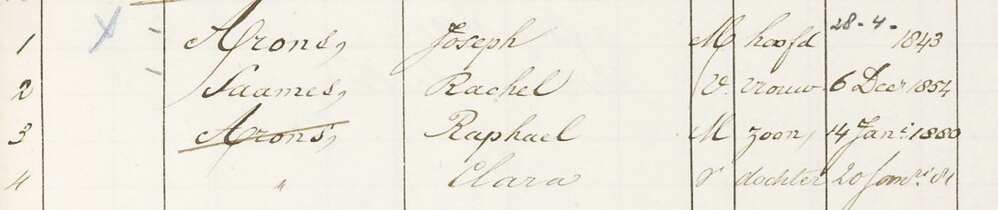 1 Arons, Joseph M hoofd 28-4- 1843
2 Saames, Rachel V. vrouw 6 Decr 1854
3 Arons, Raphael M zoon, 14 Jani: 1880
4 " Clara V dochter 20 81